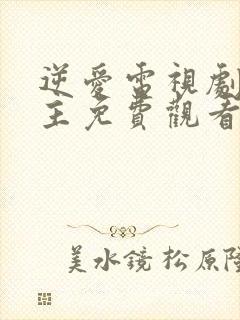 逆愛雷視劇
主免費觀看
美水鏡松原隆